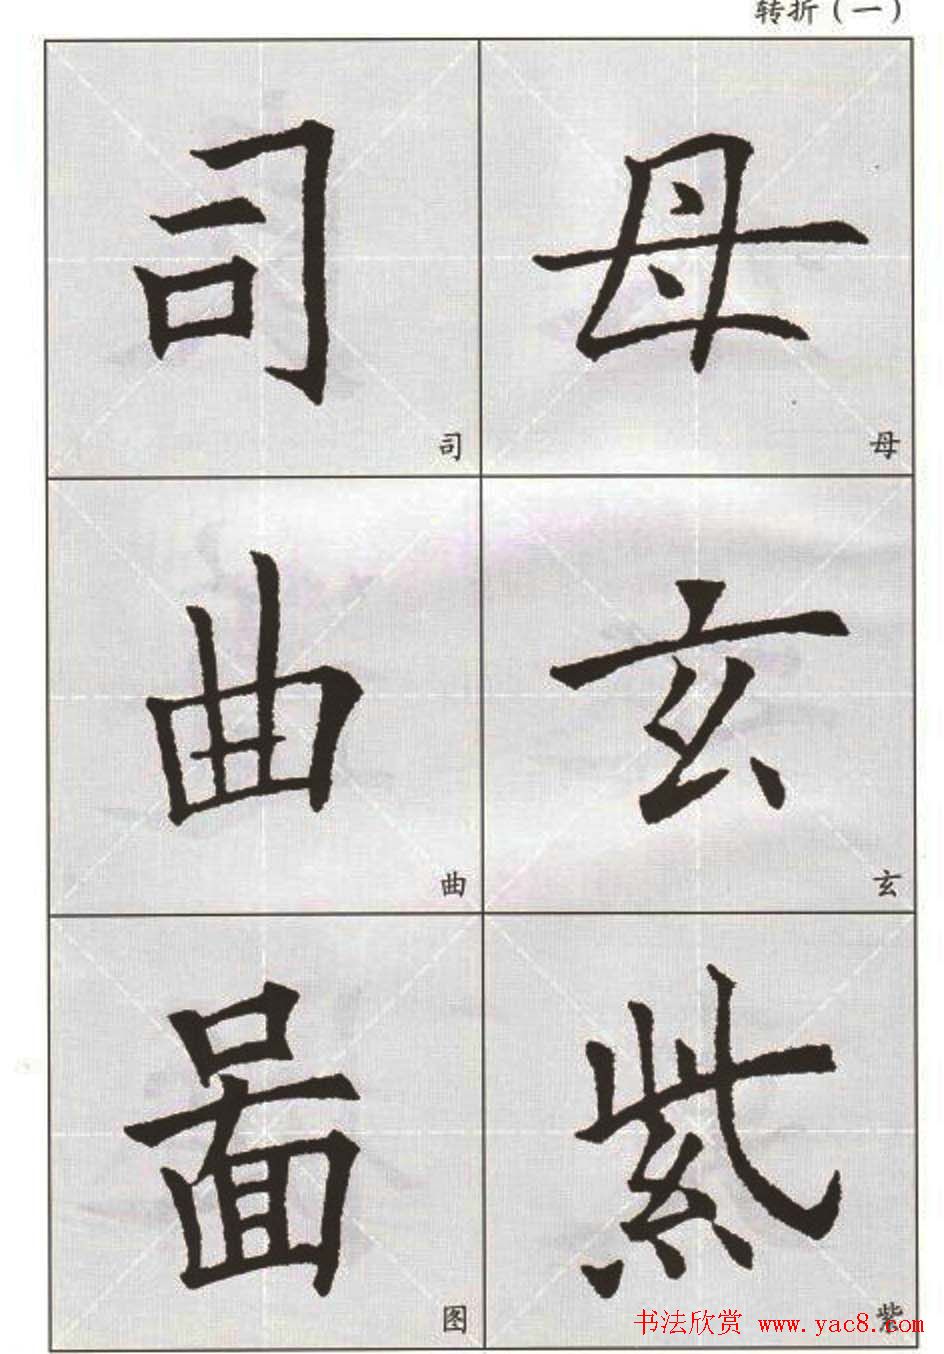 转折（一）
司 母
司 母
曲 玄
曲 玄
啚 紫
图 紫
书法欣赏 www.yac8.com